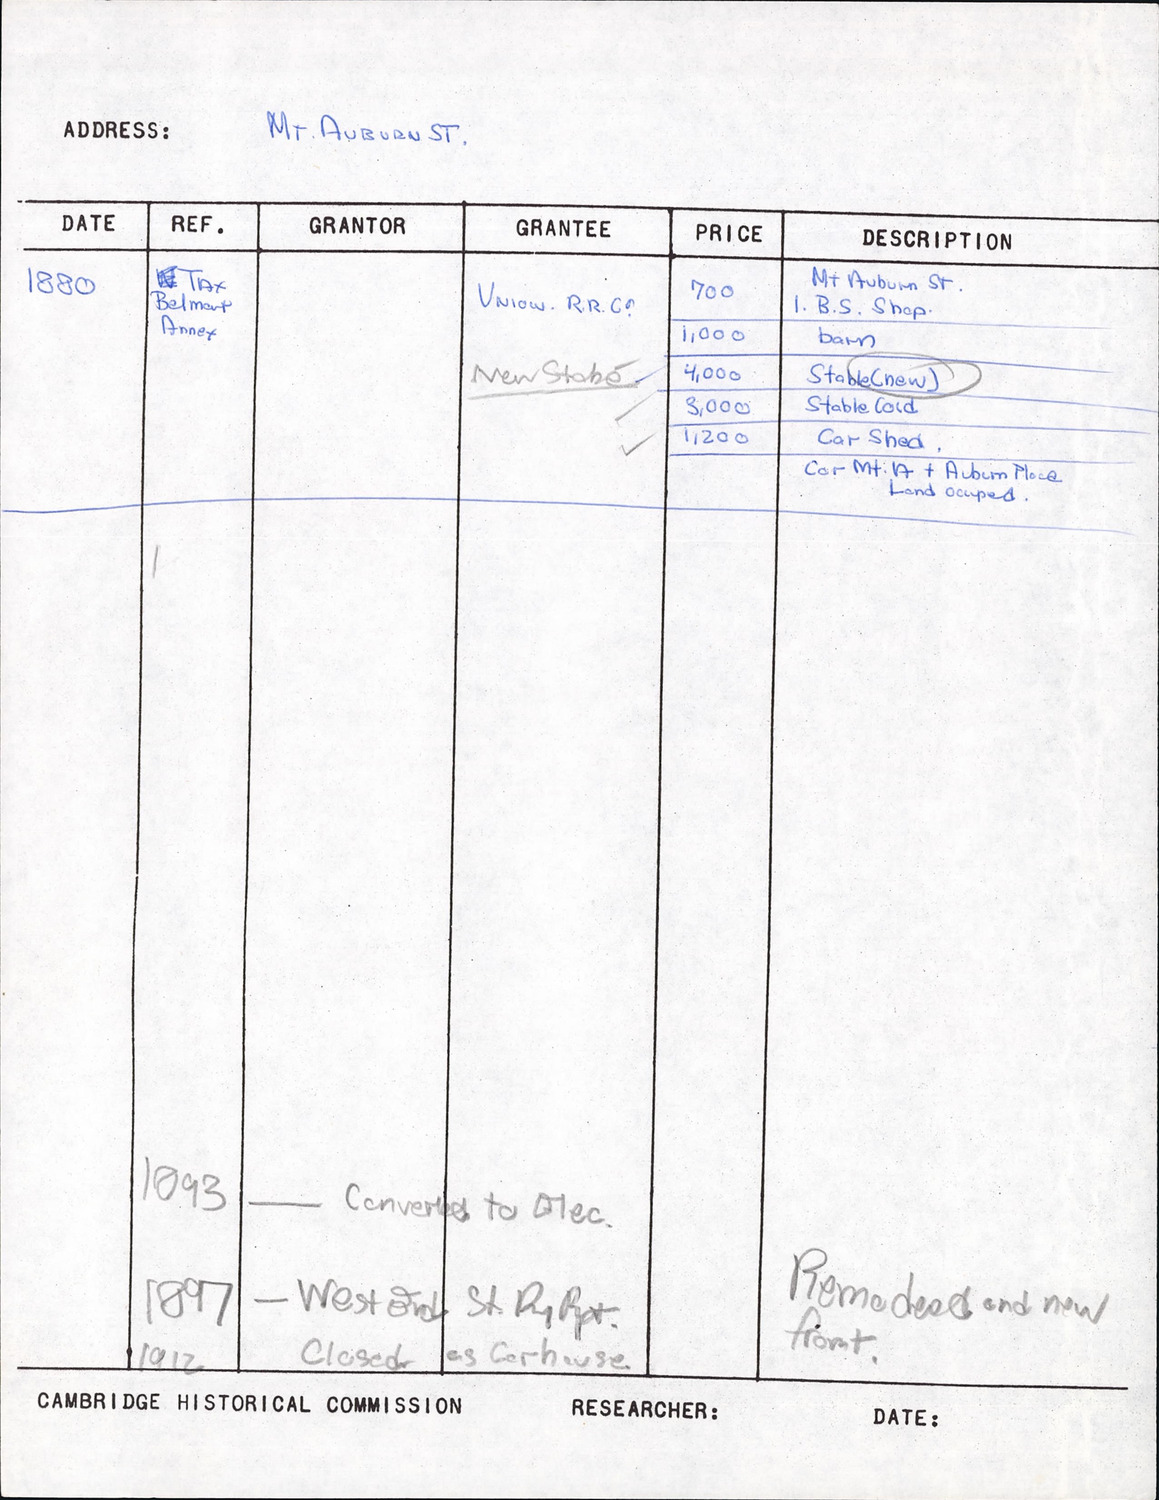 ADDRESS: Mt. Auburn St.
DATE REF. GRANTOR GRANTEE PRICE DESCRIPTION
1880 Tax Union. R.R. Co. 700 Mt Auburn St.
Belmont 1. B.S. Shop.
Annex 1,000 barn
New Stable 4,000 Stable (new)
3,000 Stable Cold
1,200 Car Shed.
Cor Mt. A + Auburn Place
Land ocuped.
1893 — Converted to Elec.
1897 — West End St. Ry Rpt. Remodeled and new
front.
1912 Closed as Carhouse
CAMBRIDGE HISTORICAL COMMISSION RESEARCHER: DATE: